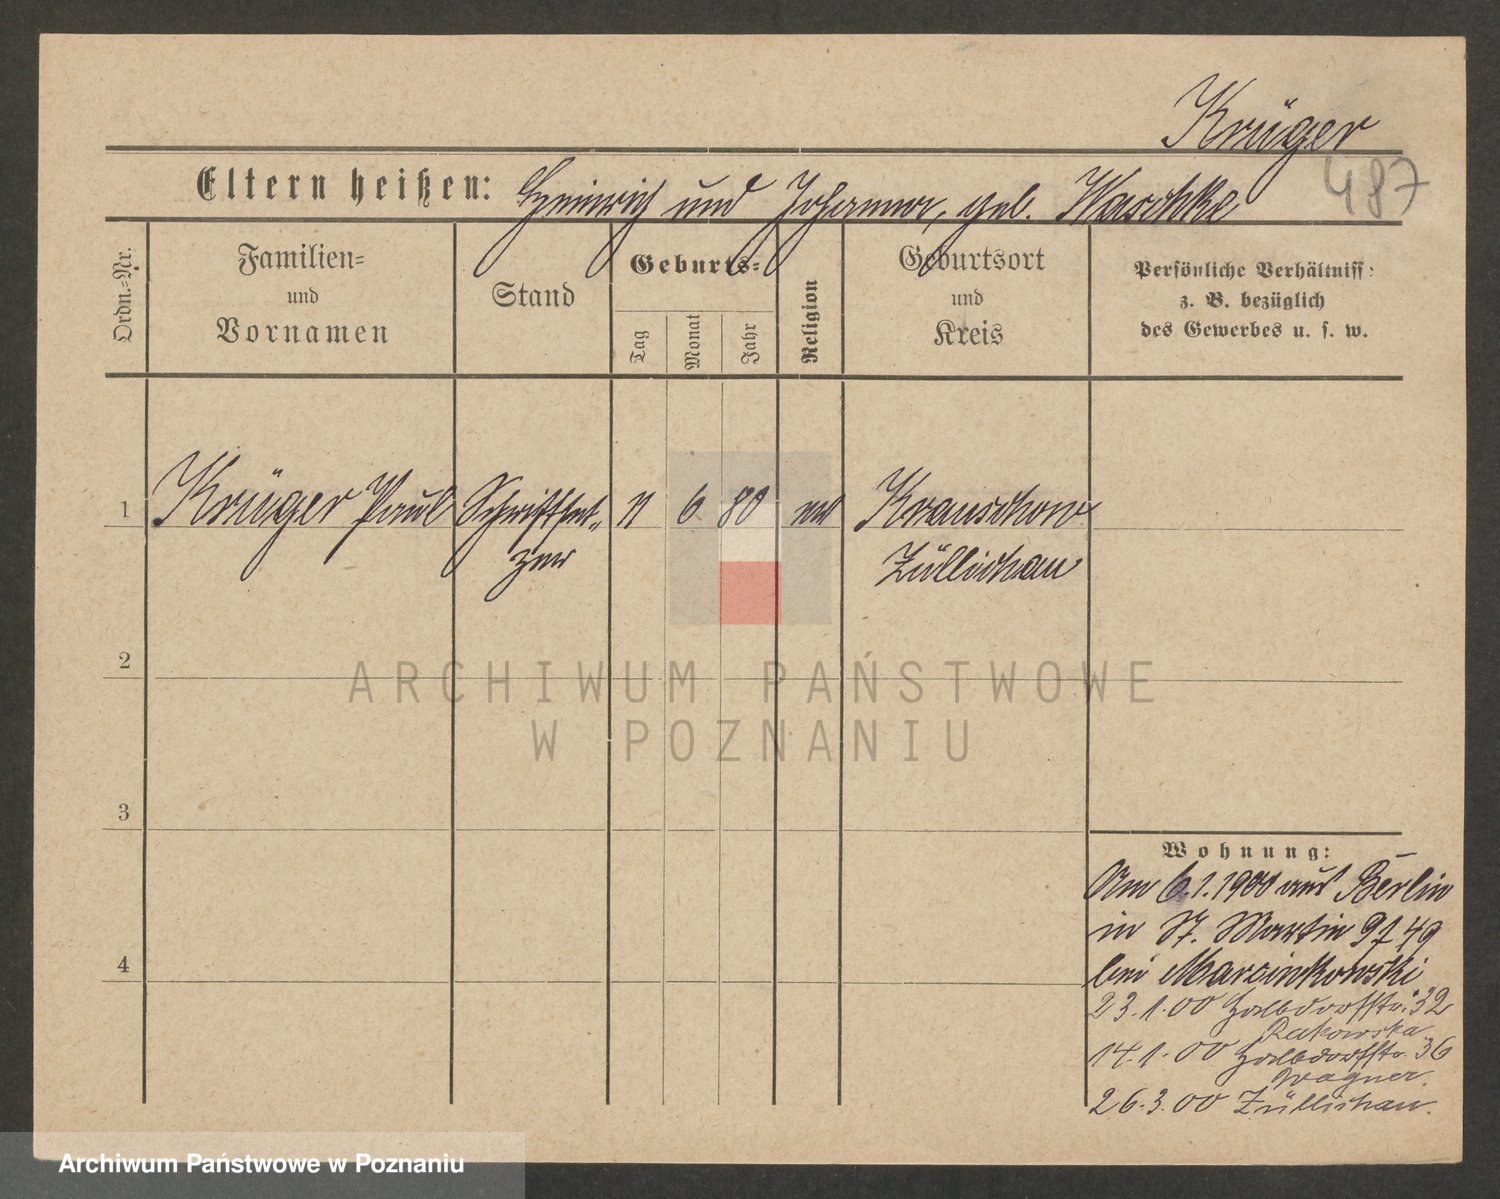 Krüger
487
Eltern heißen: Heinrich und Johanna, geb. Waschke
Ordn.=Nr.
Familien=
und
Vornamen
Stand
Geburts=
Tag
Monat
Jahr
Religion
Geburtsort
und
Kreis
Persönliche Verhältniss
z. B. bezüglich
des Gewerbes u. s. w.
1 Krüger Paul Schriftset- 11 6 80 Krauschow
zer Züllichau
2
3
4
Wohnung:
Am 6.1.1900 aus Berlin
in St. Martin 49
bei Marcinkowski
23.1.00 Halbdorfstr. 32
Rakowska
14.1.00 Halbdorfstr. 36
Wagner.
26.3.00 Züllichau.
ARCHIWUM PAŃSTWOWE
W POZNANIU
Archiwum Państwowe w Poznaniu